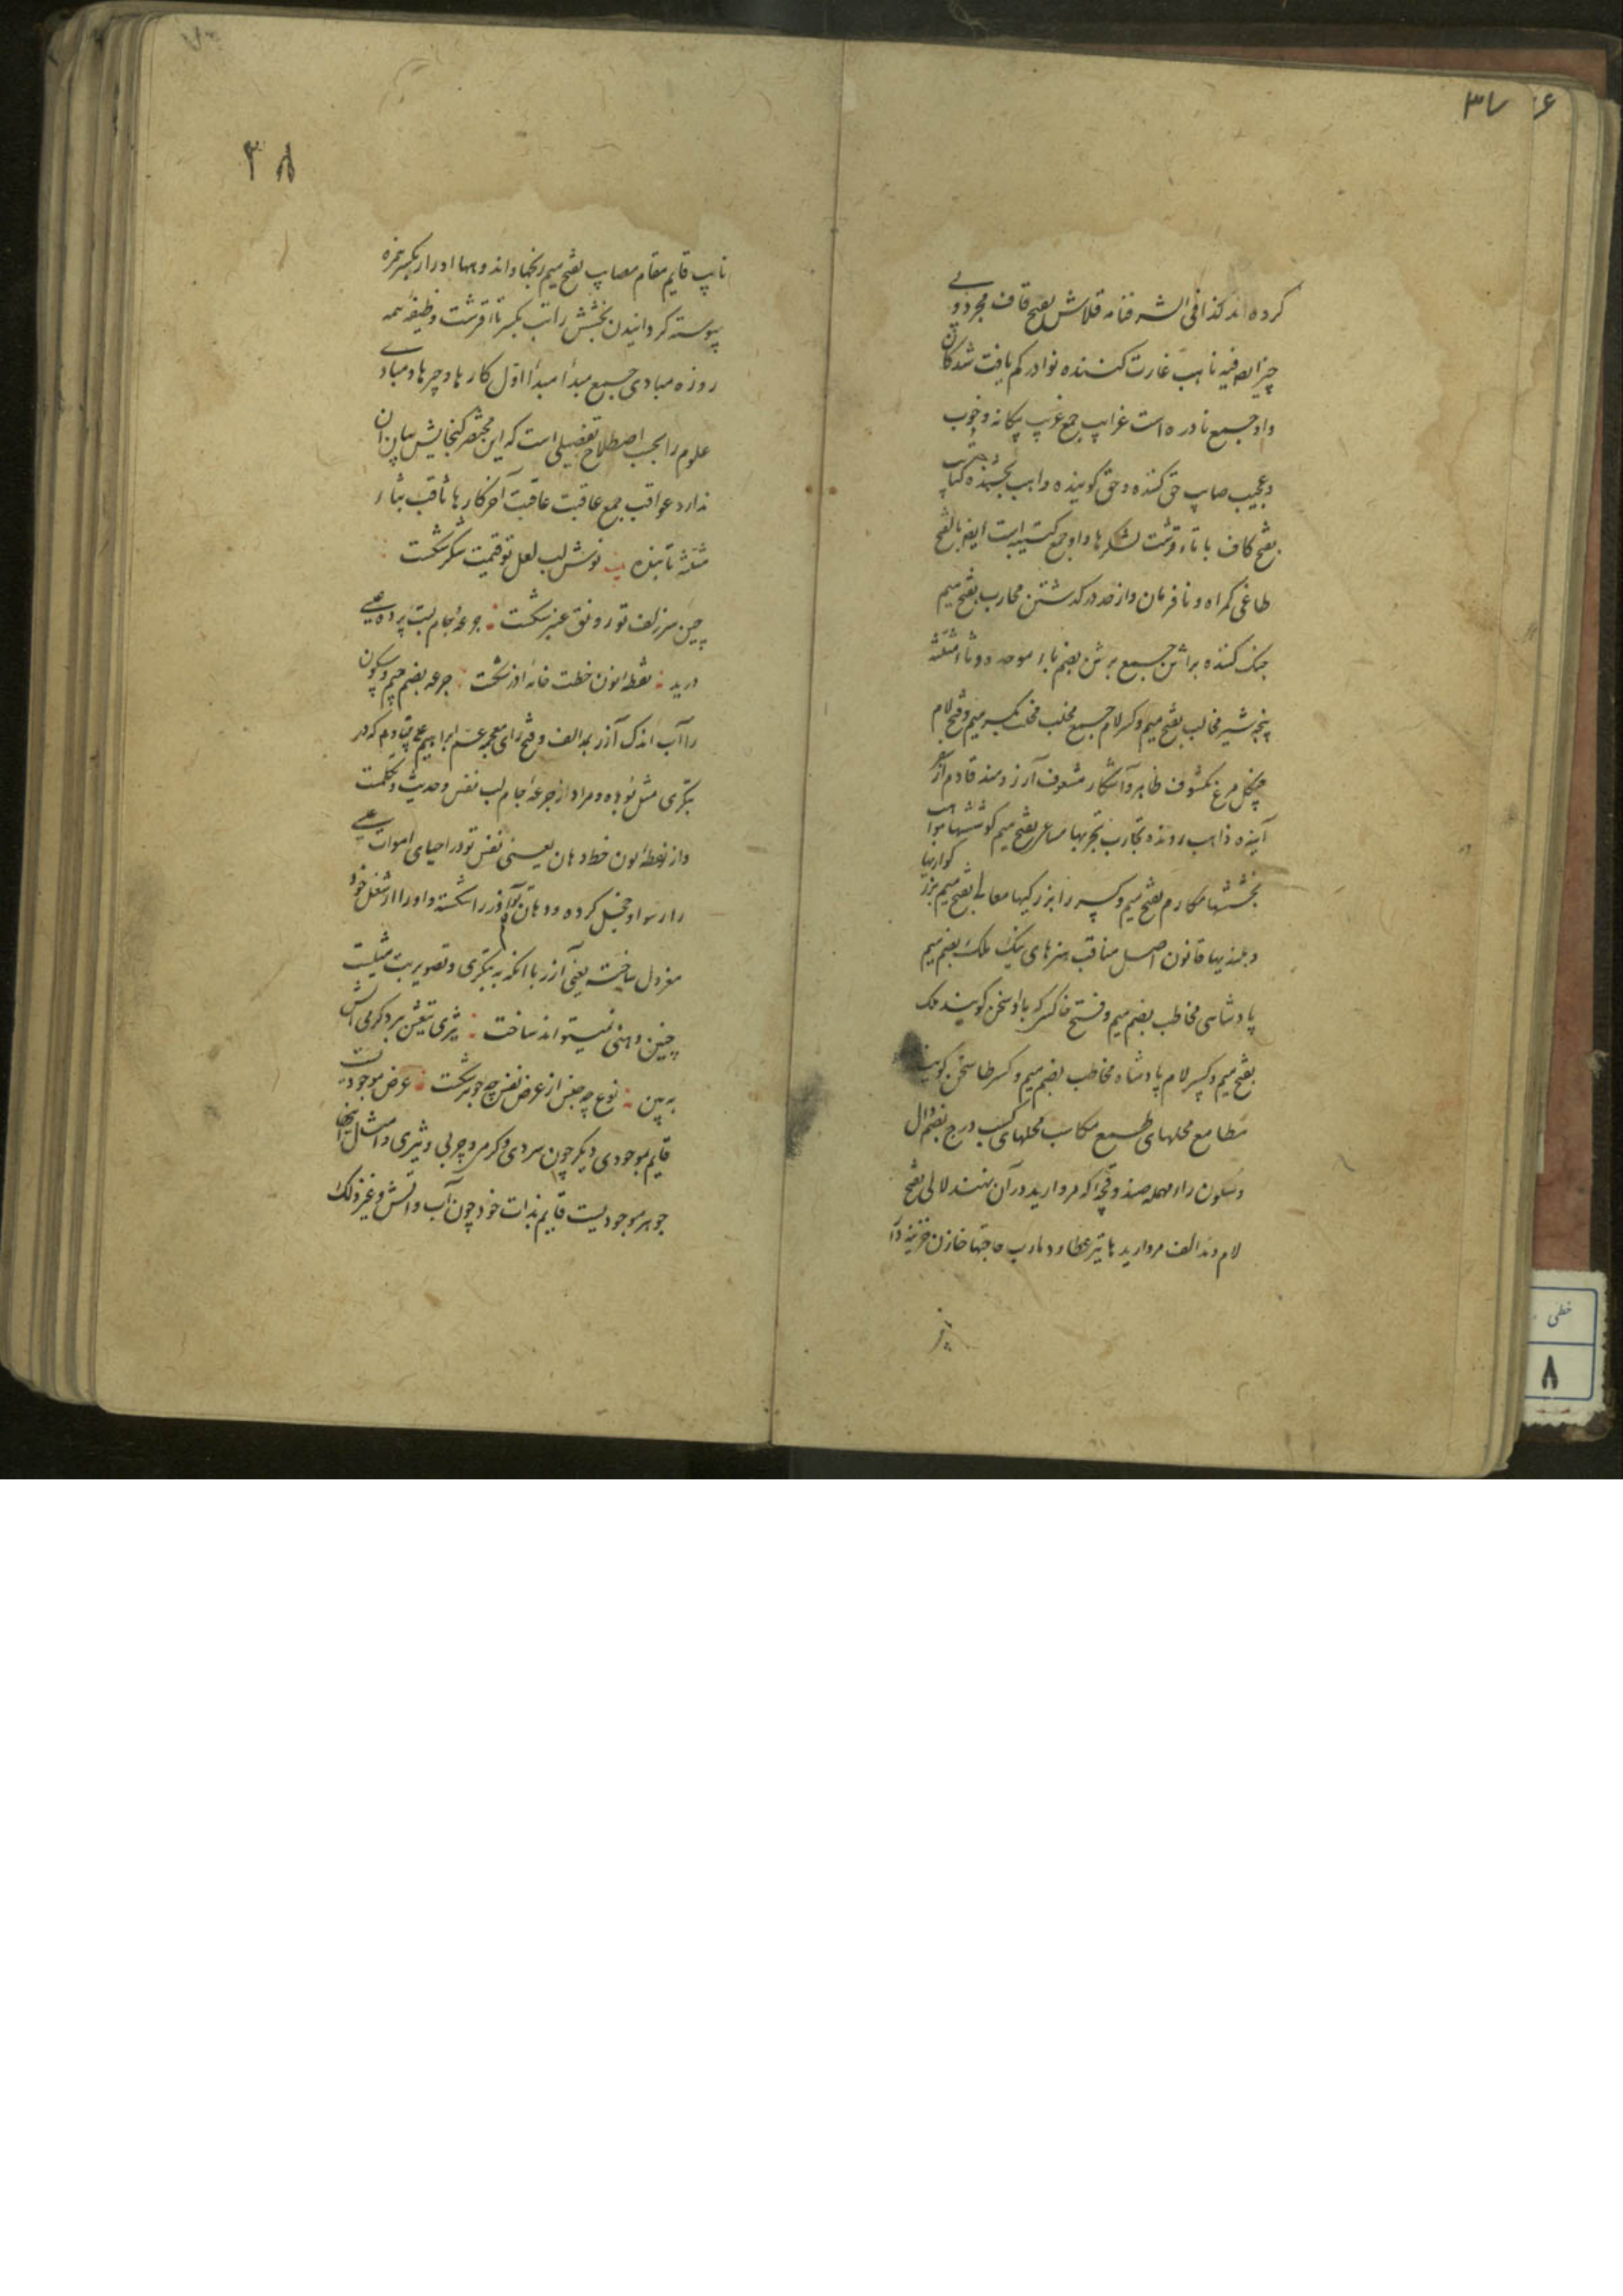 ۳۷ ۶
کرده اند کذا فی الشرفنامه قلاش بفتح قاف مجرد و بی
چیز ایضا فیه ناهب غارت کننده نوادر کم یافت شدکان
واو جمیع نادره است غرایب جمع غریب یکانه و خوب
و عجیب صایب حق کننده و حق کوینده واهب بخشنده کتایب
بفتح کاف با تاء قرشت لشکرها واو جمع کتیبه است ایضا بالفتح
طاغی کمراه و نافرمان و از حد در کذشتن محارب بفتح میم
جنک کننده براثن جمیع برثن بضم باء موحده و ثاء مثلثه
پنجه شیر مخالب بفتح میم و کسر لام جمیع مخلب مخلب بکسر میم و فتح لام
چنکل مرغ مکشوف ظاهر و آشکار مشعوف آرزومند قادم از سفر
آینده ذاهب رونده تجارب تجربها مساعی بفتح میم کوششها مواهب
بخششها مکارم بفتح میم و کسر را بزرکیها معالی بفتح میم بزر کواریها
و بلندیها قانون اصل مناقب هنرهای نیک ملک بضم میم
پادشاهی مخاطب بضم میم و فتح طا کسی که با او سخن کویند ملک
بفتح میم و کسر لام پادشاه مخاطب بضم میم و کسر طا سخن کوینده
مطامع محلهای طمع مکاسب محلهای کسب درج بضم دال
و سکون راء مهمله صندوقچه که مروارید در آن نهند لالی بفتح
لام و مد الف مرواریدها تیر عطارد مارب حاجتها خازن خزینه دار
۳۸
نایب قایم مقام مصایب بفتح میم رنجها و اندوهها ادرار بکسر همزه
پیوسته کردانیدن بخشش راتب بکسر تا قرشت وظیفه همه
روزه مبادی جمیع مبدأ مبدأ اول کارها و چیرها و مبادی
علوم را بحسب اصطلاح تفصیلی است که این مختصر کنجایش بیان آن
ندارد عواقب جمع عاقبت عاقبت آخر کارها ثاقب بثاء
مثلثه تابنده نوش لب لعل تو قیمت شکر شکست
چین سر زلف تو رونق عنبر شکست جرعه جام لبت پرده عیسی
درید نقطه نون خطت خانه آذر شکست جرعه بضم جیم و سکون
را آب اندک آزر بمد الف و فتح زای معجمه عم ابراهیم پیغامبر که در
بتکری مثل نبوده و مراد از جرعه جام لب نفس و حدیث و تکلمت
و از نقطه نون خط دهان یعنی نفس تو در احیای اموات عیسی
را رسوا و خجل کرده و دهان تو آذر را شکسته و او را از شغل خود
معزول ساخته یعنی آزر با آنکه به بتکری و تصویر بت مثلیست
چنین دهنی نمیتواند ساخت
به بین نوع چه جنس از عرض نفس چه جوهر شکست عرض موجودیست
قایم بموجودی دیکر چون سردی و کرمی و چربی و تیزی و امثال اینها
جوهر موجودیست قایم بذات خود چون آب و آتش و غیر ذلک
خطی
۸